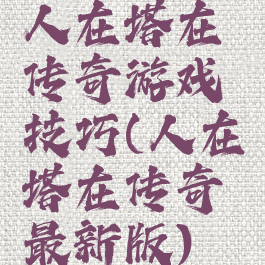 人在塔在
传奇游戏
技巧(人在
塔在传奇
最新版)